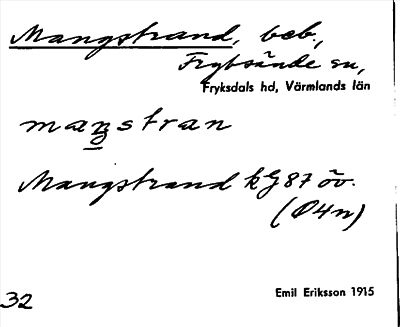 Mangstrand, beb.,
Fryksände sn,
Fryksdals hd, Värmlands län
mæŋstran
Mangstrand kG 87 öv.
(Ö4n)
32
Emil Eriksson 1915